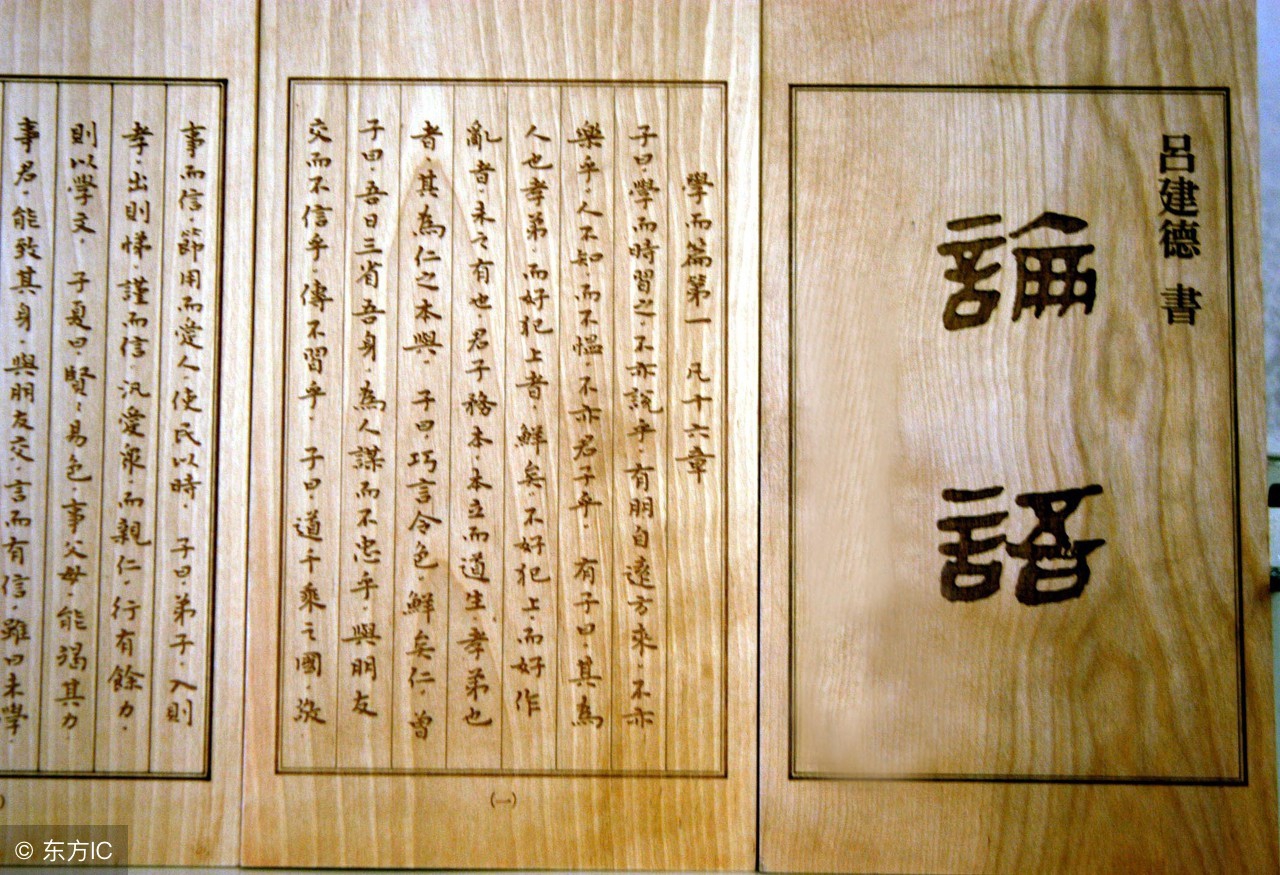 呂建德 書
論語
學而篇第一 凡十六章
子曰·學而時習之·不亦說乎·有朋自遠方來·不亦
樂乎·人不知·而不慍·不亦君子乎· 有子曰·其為
人也孝弟·而好犯上者·鮮矣·不好犯上·而好作
亂者·未之有也·君子務本·本立而道生·孝弟也
者·其為仁之本與· 子曰·巧言令色·鮮矣仁·曾
子曰·吾日三省吾身·為人謀而不忠乎·與朋友
交而不信乎·傳不習乎· 子曰·道千乘之國·敬
事而信·節用而愛人·使民以時· 子曰·弟子·入則
孝·出則悌·謹而信·汎愛眾·而親仁·行有餘力·
則以學文· 子夏曰·賢〻易色·事父母·能竭其力
事君·能致其身·與朋友交·言而有信·雖曰未學·
(一)
© 东方IC